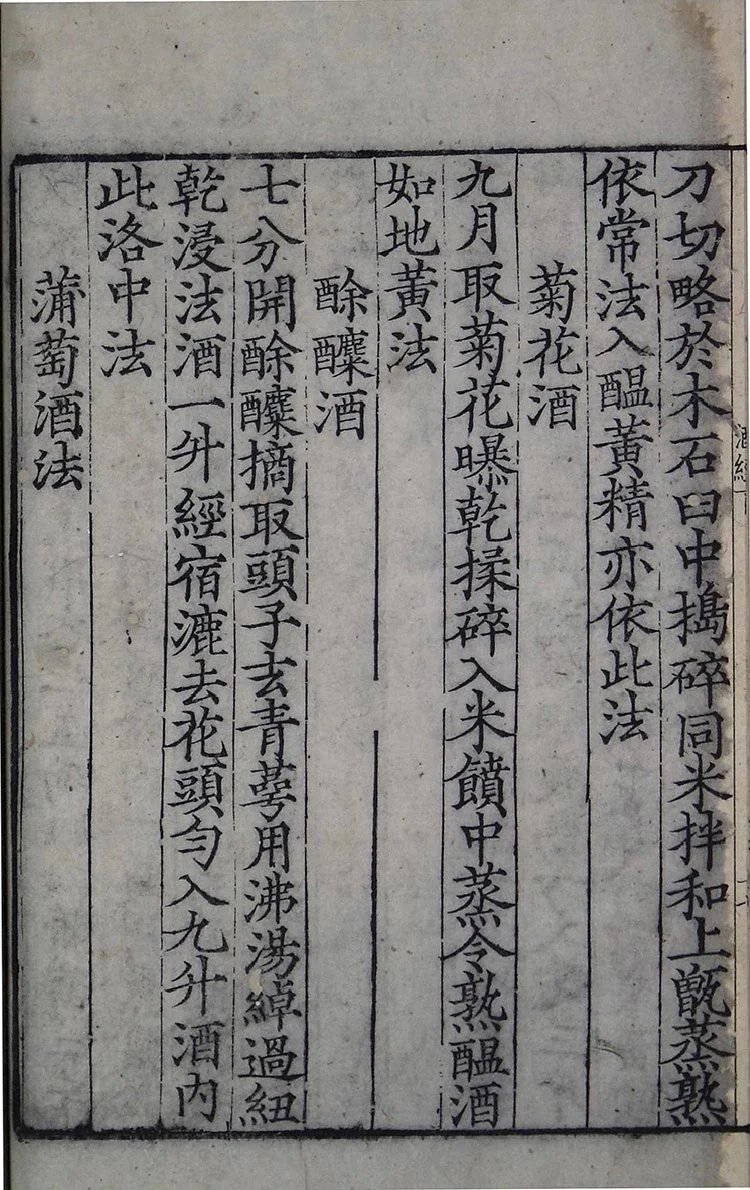 刀切略於木石臼中搗碎同米拌和上甑蒸熟
依常法入醖黄精亦依此法
菊花酒
九月取菊花曝乾揉碎入米饙中蒸令熟醖酒
如地黄法
酴醾酒
七分開酴醾摘取頭子去青萼用沸湯綽過紐
乾浸法酒一升經宿漉去花頭勻入九升酒内
此洛中法
蒲萄酒法
酒經